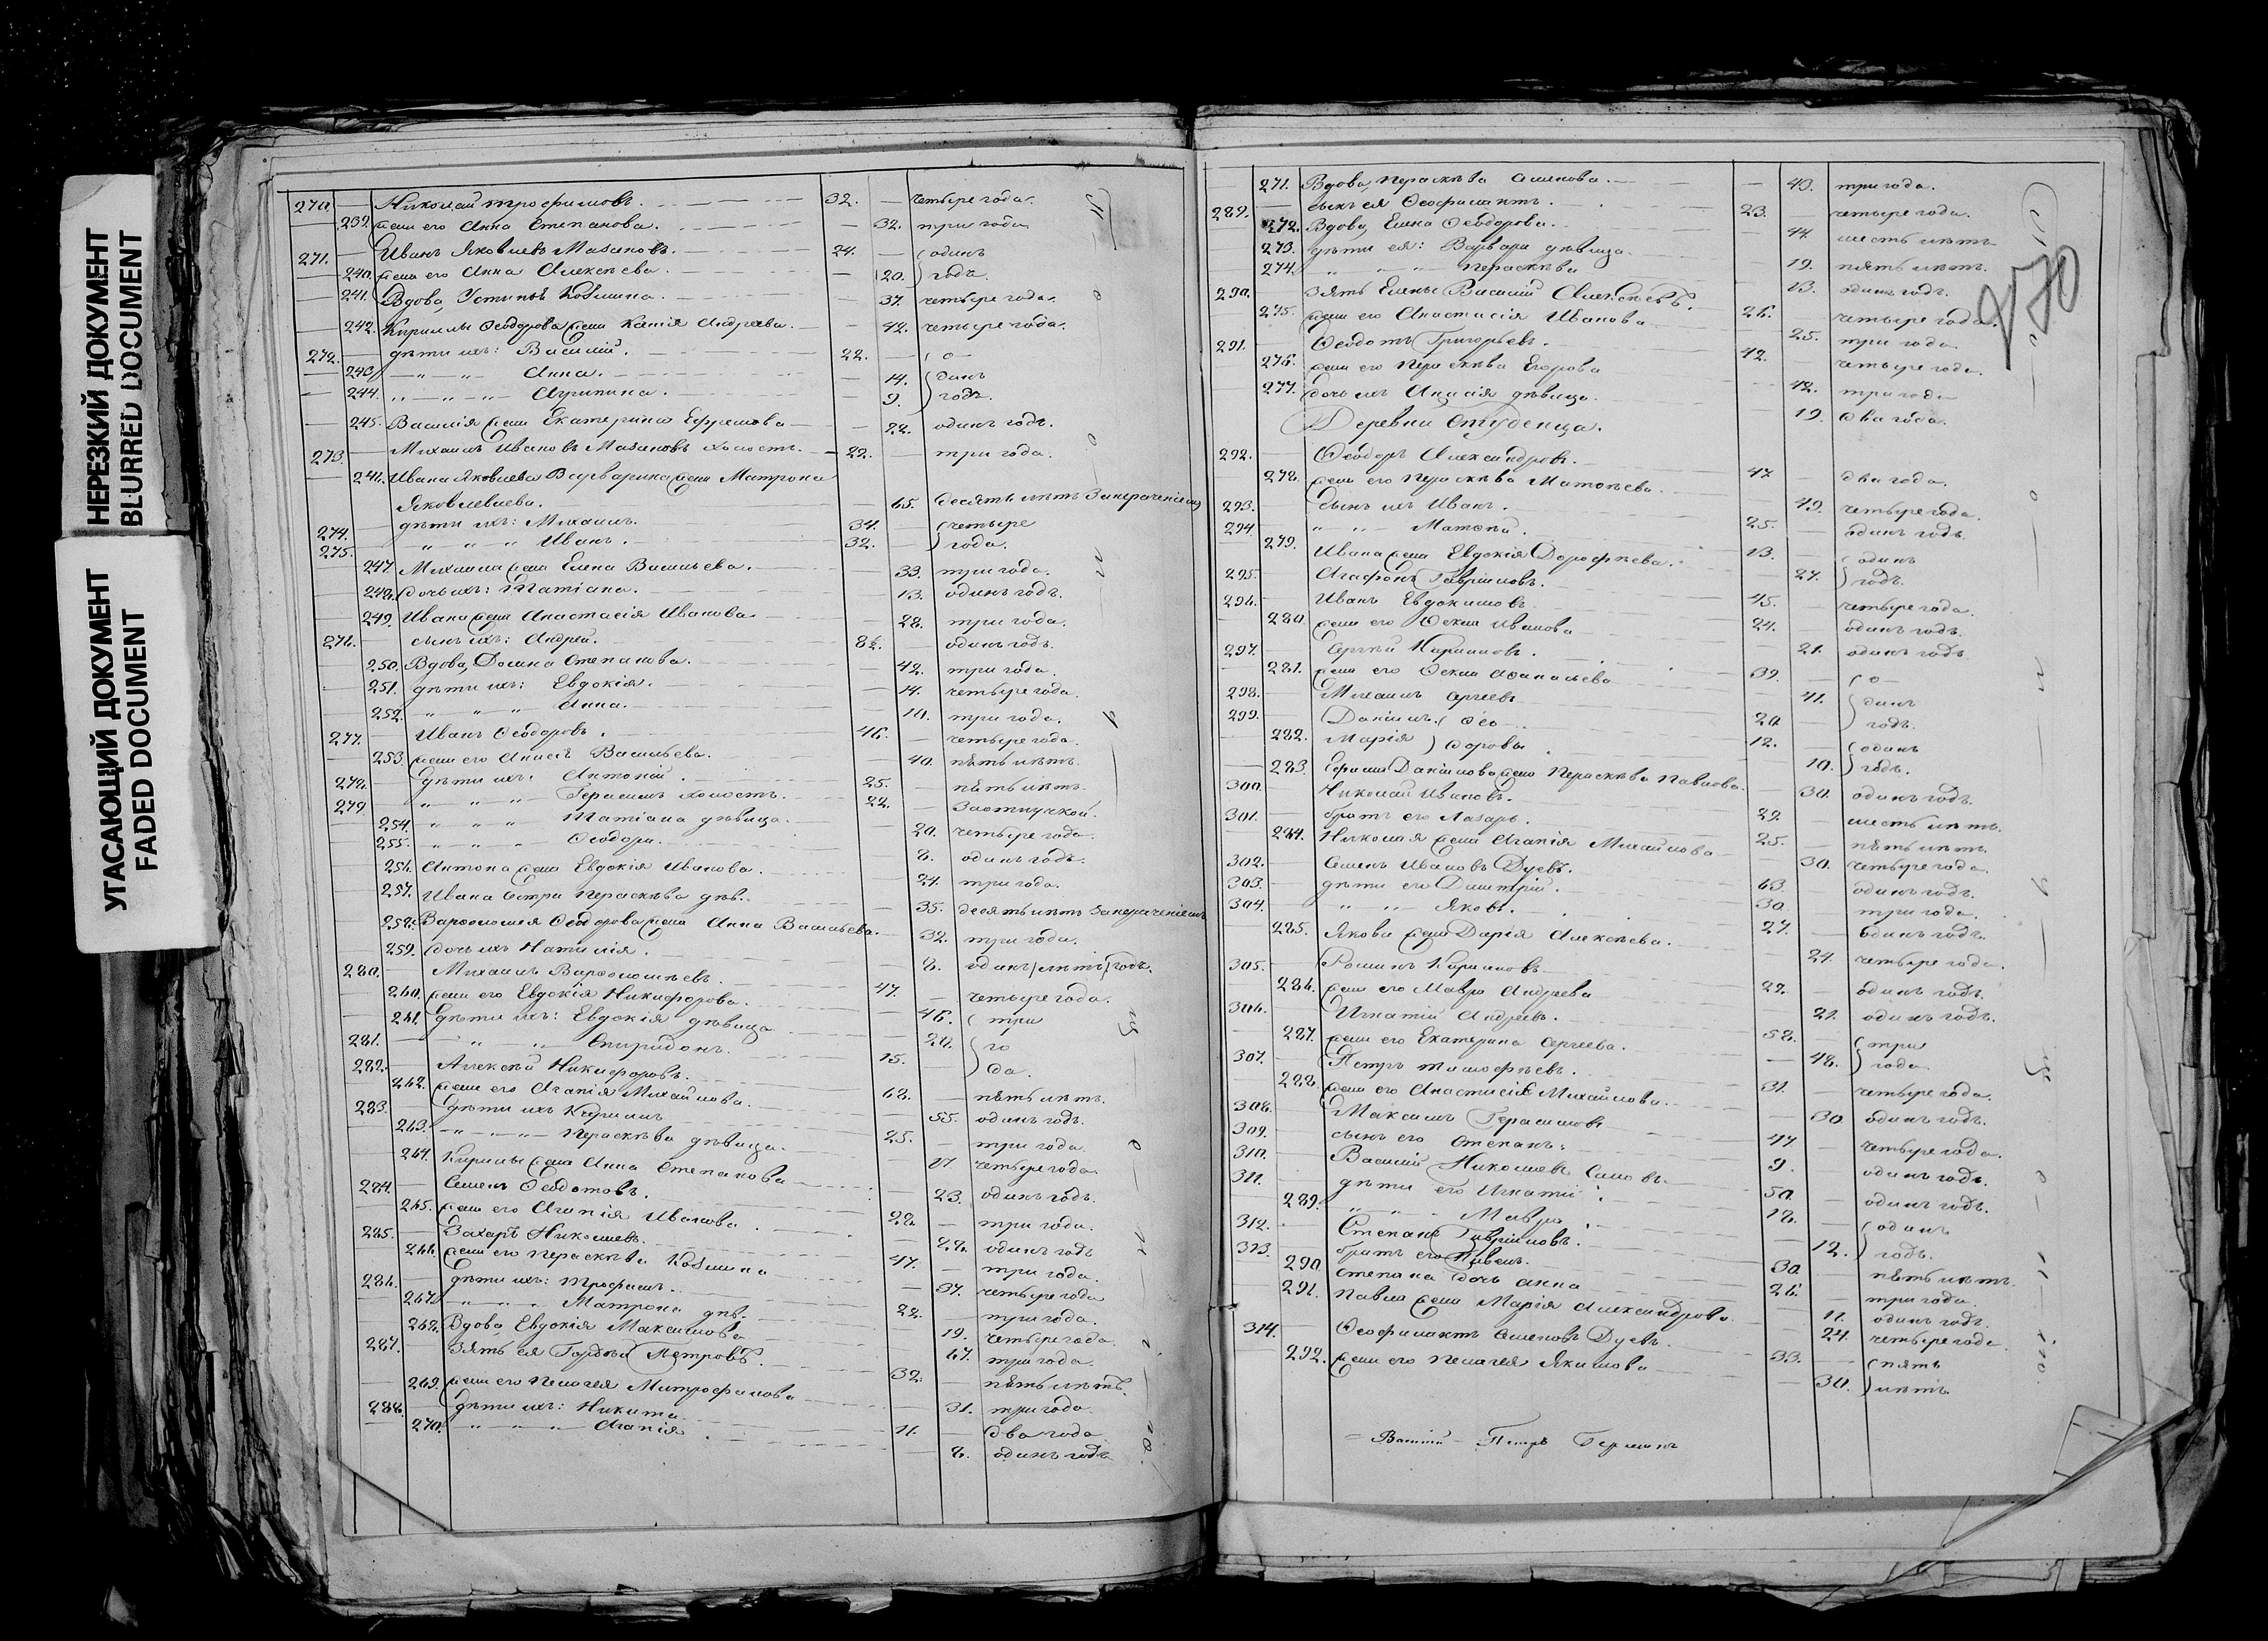 НЕРЕЗКИЙ ДОКУМЕНТ
BLURRED DOCUMENT
УГАСАЮЩИЙ ДОКУМЕНТ
FADED DOCUMENT
270. — Николай Трофимовъ. 32. — четыре года.
239. жена его Анна Степанова. — 32. три года.
271. — Иванъ Яковлевъ Мазановъ. 24. — одинъ
240. жена его Анна Алексѣева. — 20. годъ.
241. Вдова, Устинья Козмина. — 37. четыре года.
242. Кириллы Ѳеодорова жена Ксенія Андреева. — 42. четыре года.
272. — дѣти ихъ: Василій. 22. — о-
243. — „ — „ Анна. — 14. динъ
244. „ — „ — „ Агрипина. — 9. годъ.
245. Василія жена Екатерина Ефремова — 22. одинъ годъ.
273. — Михаилъ Ивановъ Мазановъ холостъ. 22. — три года.
246. Ивана Яковлева жена Матрона
Яковлевлева. — 65. десять лѣтъ
274. — дѣти ихъ: Михаилъ. 34. — четыре
275. — „ — „ — „ Иванъ. 32. — года.
247. Михаила жена Елена Васильева. — 33. три года.
248. дочь ихъ: Татіана. — 13. одинъ годъ.
249. Ивана жена Анастасія Иванова — 28. три года.
276. — сынъ ихъ: Андрей. 8½. — одинъ годъ.
250. Вдова, Домна Степанова. — 42. три года.
251. дѣти ихъ: Евдокія. — 14. четыре года.
252. „ — „ — „ Анна. — 10. три года.
277. — Иванъ Ѳеодоровъ. 46. — четыре года.
253. жена его Анисія Васильева. — 40. пять лѣтъ.
278. — дѣти ихъ: Антоній. 25. — пять лѣтъ.
279. — „ „ „ Герасимъ холостъ. 22. — Заотлучкой.
254. „ — „ „ Татіана дѣвица. — 20. четыре года.
255. „ „ „ Ѳеодора. — 8. одинъ годъ.
256. Антона жена Евдокія Иванова. — 24. три года.
257. Ивана сестра Параскѣва дѣв. — 35. десять лѣтъ
258. Варѳоломея Ѳеодорова жена Анна Васильева. — 32. три года.
259. дочь ихъ Наталія. — 8. одинъ годъ.
280. — Михаилъ Варѳоломѣевъ. 47. — четыре года.
260. жена его Евдокія Никифорова. — 46. три
261. дѣти ихъ: Евдокія дѣвица — 20. го
281. — „ „ Спиридонъ. 15. — да.
282. — Алексѣй Никифоровъ. 68. — пять лѣтъ.
262. жена его Агапія Михайлова. — 55. одинъ годъ.
283. — дѣти ихъ Кириллъ 25. — три года.
263. — „ — „ — „ — Параскѣва дѣвица. — 17. четыре года.
264. Кирилы жена Анна Степанова — 23. одинъ годъ.
284. — Семенъ Ѳеодотовъ. 28. — три года.
265. жена его Агапія Иванова. — 28. одинъ годъ
285. — Захаръ Николаевъ. 47. — три года.
266. жена его Параскѣва Козмина — 37. четыре года
286. — дѣти ихъ: Трофимъ. 22. — три года.
267. „ — „ — „ Матрона дѣв. — 19. четыре года.
268. Вдова, Евдокія Максимова — 67. три года.
287. — Зять ея Гордѣй Петровъ. 32. — пять лѣтъ.
269. жена его Пелагея Митрофанова — 31. три года.
288. — дѣти ихъ: Никита 11. — два года
270. „ — „ — „ — Агапія. — 8. одинъ годъ
271. Вдова, Параскѣва Семенова. — 43. три года.
289. — сынъ ея Ѳеофилактъ. 23. — четыре года.
272. Вдова, Елена Ѳеодорова. — 44. шесть лѣтъ
273. дѣти ея: Варвара дѣвица. — 19. пять лѣтъ.
274. „ „ „ — Параскѣва — 13. одинъ годъ.
290. — Зять Елены Василій Алексѣевъ. 26. — четыре года.
275. жена его Анастасія Иванова — 25. три года
291. — Ѳеодотъ Григорьевъ. 42. — четыре года.
276. жена его Параскѣва Егорова — 42. три года
277. дочь ихъ дѣвица. — 19. два года.
Деревни Студенца.
292. — Ѳеодоръ Александровъ. 47. — два года.
278. жена его Параскѣва Матвѣева. — 49. четыре года.
293. — сынъ ихъ Иванъ. 25. — одинъ годъ.
294. — „ „ — Матвѣй. 13. — одинъ
279. Ивана жена Евдокія Дорофѣева. — 27. годъ.
295. — Агафонъ Гавріиловъ. 45. — четыре года.
296. — Иванъ Евдокимовъ 24. — одинъ годъ.
280. жена его Ѳекла Иванова — 21. одинъ годъ.
297. — Сергѣй Кирилловъ. 39. — о-
281. жена его Ѳекла Аѳанасьева — 41. динъ
298. — Михаилъ Сергеевъ 20. — годъ.
299. — Даніилъ Ѳео 12. — одинъ
282. Марія доровы — 10. годъ.
283. Ефима Данилова жена Параскѣва Павлова. — 30. одинъ годъ.
300. — Николай Ивановъ. 29. — шесть лѣтъ.
301. — братъ его Лазарь. 25. — пять лѣтъ.
284. Николая жена Агапія Михайлова — 30. четыре года.
302. — Семенъ Ивановъ Дуевъ. 63. — одинъ годъ.
303. — дѣти его Димитрій. 30. — три года.
304. — „ „ Яковъ. 27. — одинъ годъ.
285. Якова жена Дарія Алексѣева. — 24. четыре года.
305. — Романъ Кириловъ 22. — одинъ годъ.
286. жена его Мавра Андреева — 21. одинъ годъ.
306. — Игнатій Андреевъ. 58. — три
287. жена его Екатерина Сергеева. — 48. года.
307. — Петръ Тимофѣевъ. 31. — четыре года.
288. жена его Анастасія Михайлова. — 30. одинъ годъ.
308. — Максимъ Герасимовъ 47. — четыре года.
309. — сынъ его Степанъ. 9. — одинъ годъ.
310. — Василій Николаевъ 50. — одинъ годъ.
311. — дѣти его Игнатій. 18. — одинъ
289. „ „ „ Мавра. — 12. годъ.
312. — Степанъ Гавріиловъ. 30. — пять лѣтъ.
313. — братъ его Павелъ. 26. — три года.
290. Степана дочь Анна — 11. одинъ годъ.
291. Павла жена Марія Александрова — 24. четыре года.
314. — Ѳеофилактъ Семеновъ Дуевъ. 33. — пять
292. жена его Пелагея Якимова — 30. лѣтъ
= Василій — Петръ